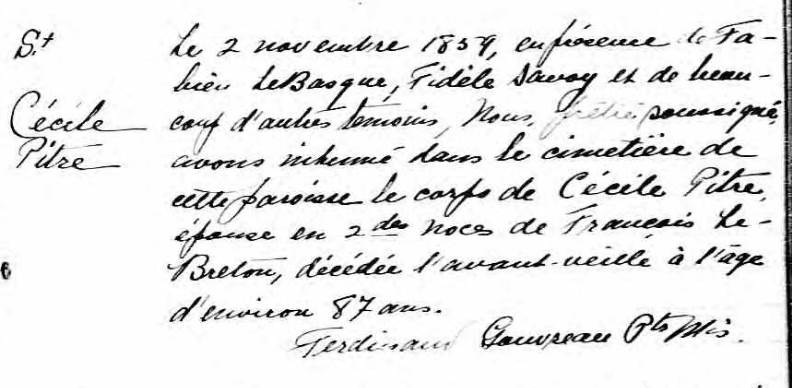 S.t
Cécile
Pitre
Le 2 novembre 1859, en présence de Fa-
bien LeBasque, Fidèle Savoy et de beau-
coup d'autres témoins, Nous, prêtre soussigné,
avons inhumé dans le cimetière de
cette paroisse le corps de Cécile Pitre,
épouse en 2des noces de François Le-
Breton, décédée l'avant-veille à l'âge
d'environ 87 ans.
Ferdinand Gauvreau Ptre Mis.